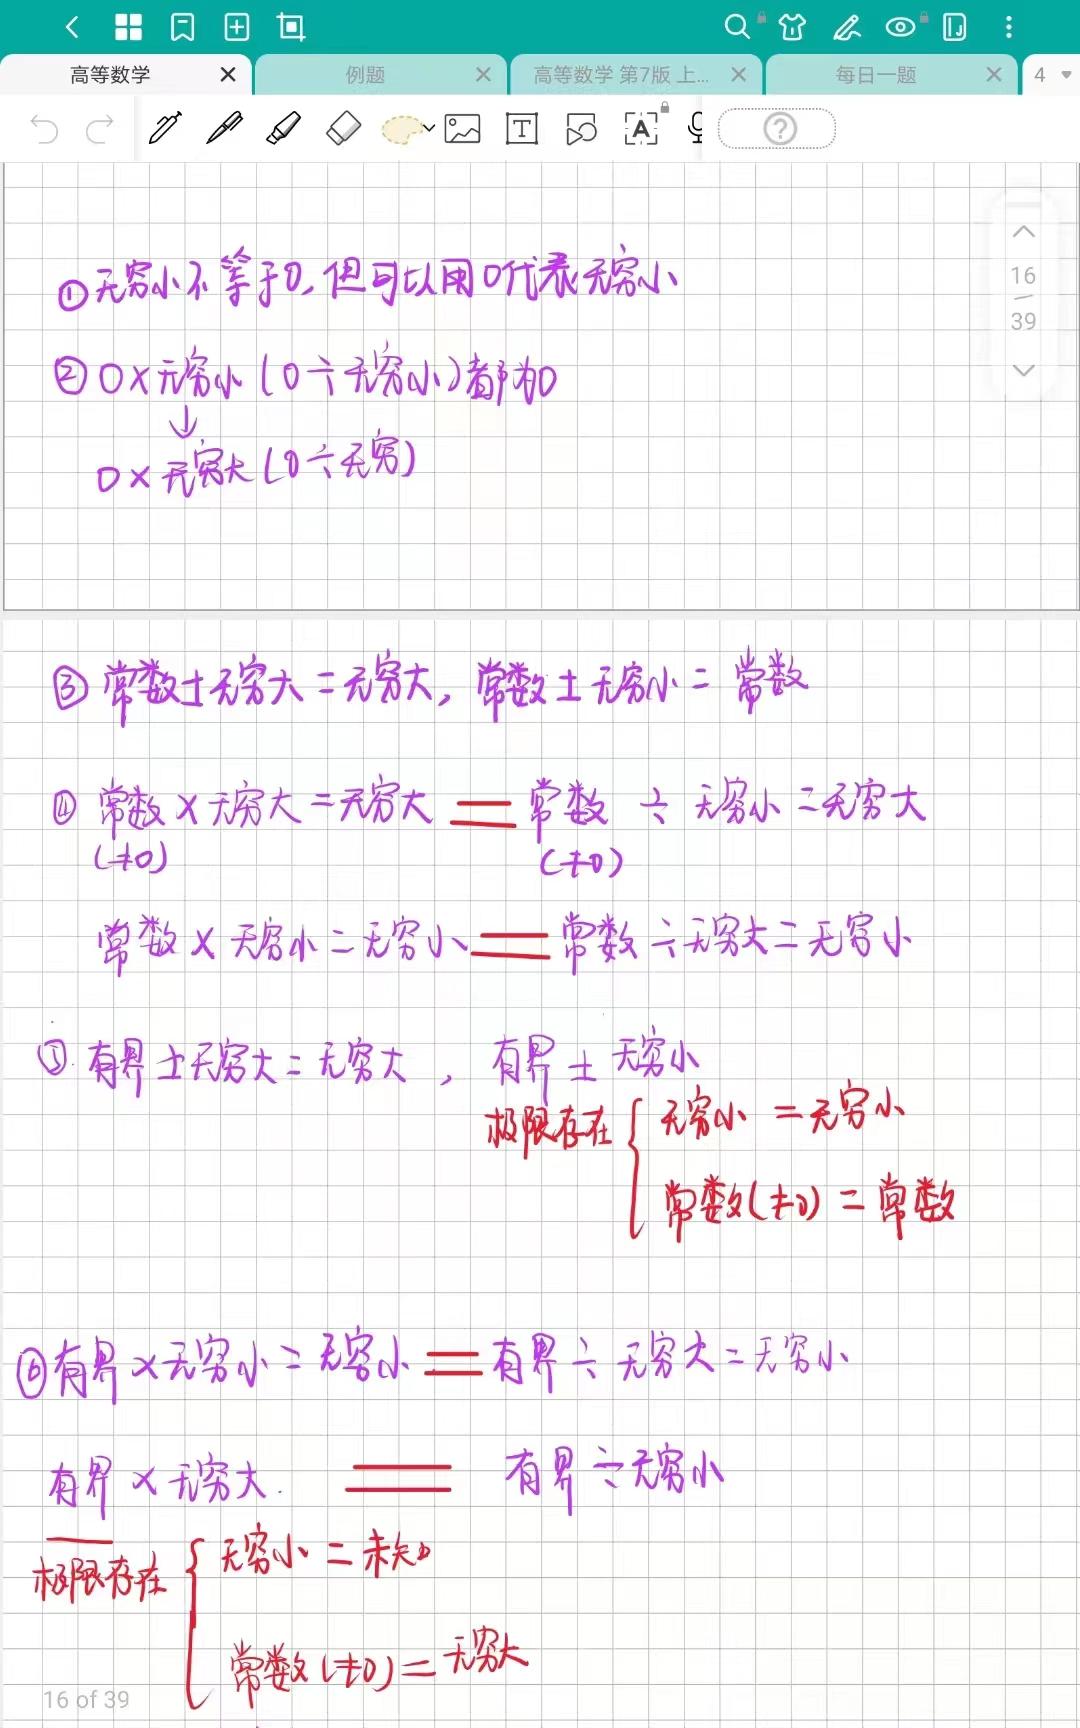 高等数学 例题 高等数学 第7版 上... 每日一题 4
16
39
①无穷小不等于0,但可以用0代表无穷小
②0×无穷小(0÷无穷小)都为0
↓
0×无穷大(0÷无穷)
③常数±无穷大=无穷大,常数±无穷小=常数
④常数×无穷大=无穷大=常数÷无穷小=无穷大
(≠0) (≠0)
常数×无穷小=无穷小=常数÷无穷大=无穷小
⑤.有界±无穷大=无穷大,有界±无穷小
极限存在{无穷小=无穷小
常数(≠0)=常数
⑥有界×无穷小=无穷小=有界÷无穷大=无穷小
有界×无穷大.=有界÷无穷小
极限存在{无穷小=未知
常数(≠0)=无穷大
16 of 39